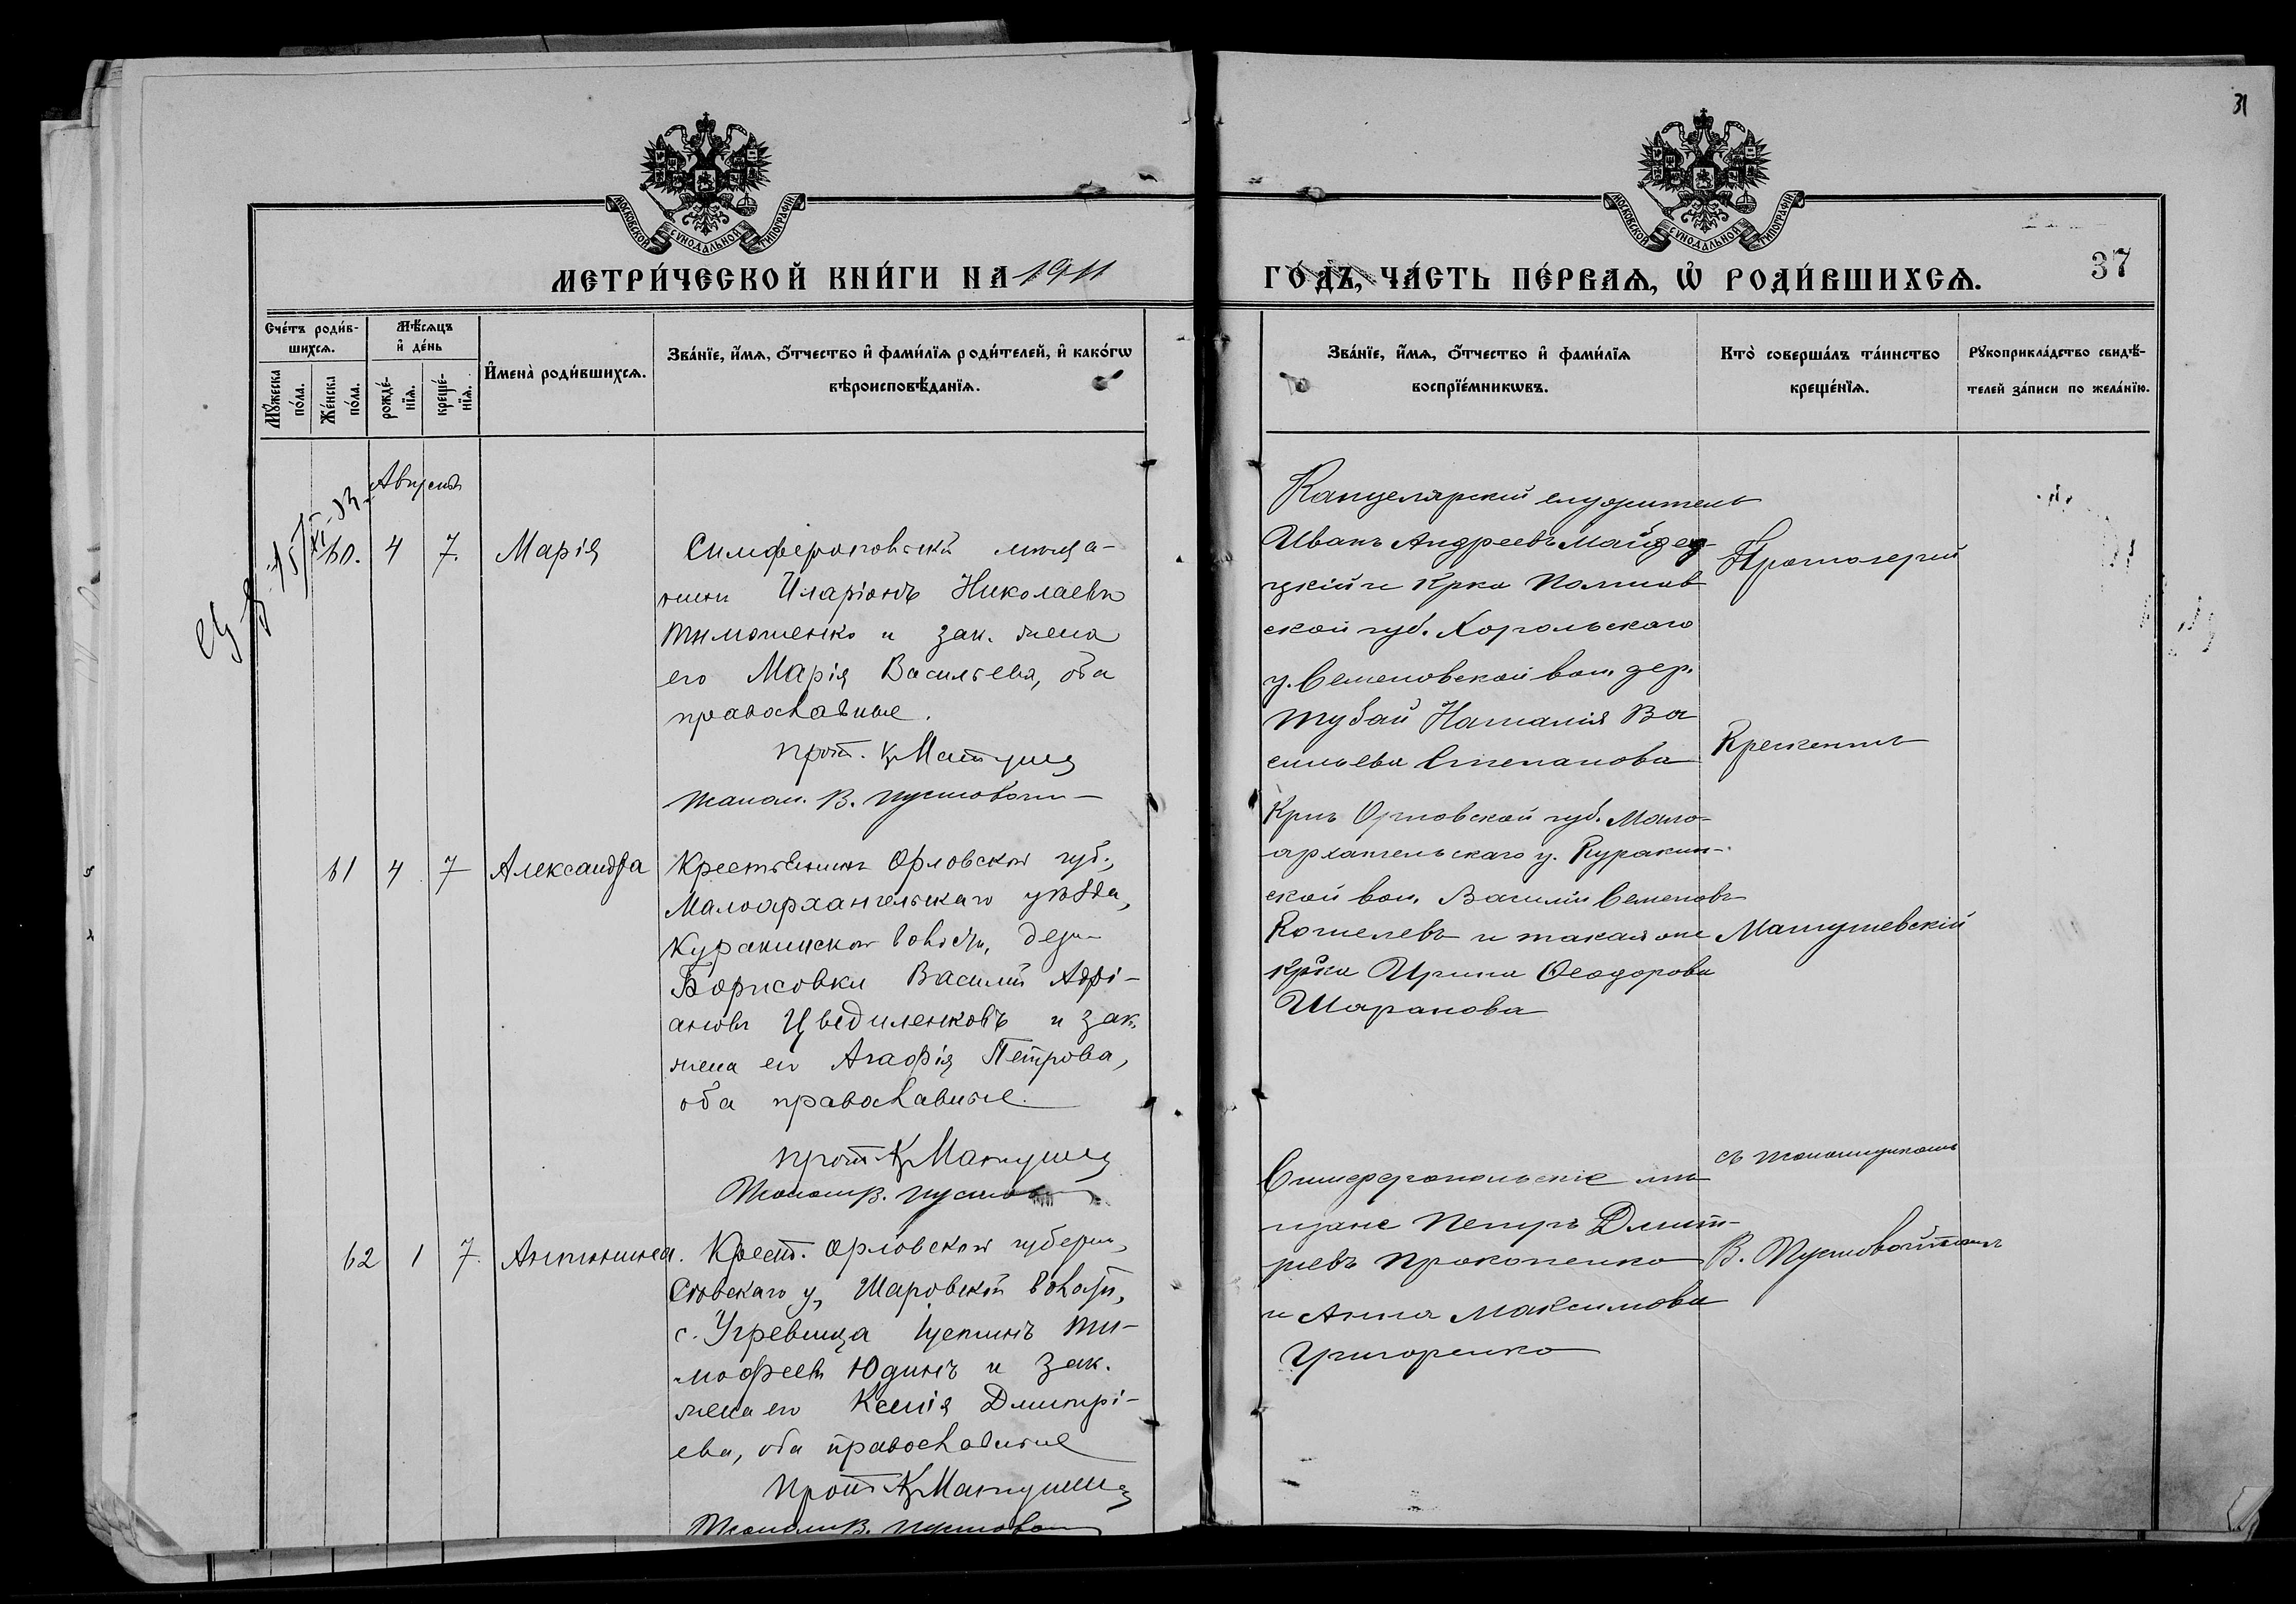 31
МОСКОВСКОЙ СУНОДАЛЬНОЙ ТИПОГРАФІИ
МОСКОВСКОЙ СУНОДАЛЬНОЙ ТИПОГРАФІИ
МЕТРИ́ЧЕСКОЙ КНИ́ГИ НА 1911
ГО́ДЪ, ЧА́СТЬ ПЕ́РВАѦ, Ѡ҆ РОДИ́ВШИХСѦ.
37
Сче́тъ роди́в-
шихсѧ.
Мꙋ́жеска по́ла.
Же́нска по́ла.
Мѣ́сѧцъ
и҆ де́нь
рожде́-
нїѧ.
креще́-
нїѧ.
И҆мена̀ роди́вшихсѧ.
Зва́нїе, и҆́мѧ, ѻ҆́тчество и҆ фами́лїѧ роди́телей, и҆ како́гѡ
вѣроисповѣ́данїѧ.
Зва́нїе, и҆́мѧ, ѻ҆́тчество и҆ фами́лїѧ
воспрїе́мникѡвъ.
Кто̀ соверша́лъ та́инство
креще́нїѧ.
Рꙋкоприкла́дство свидѣ́-
телей за́писи по жела́нїю.
Апрель
60. 4 7. Марія
Симферопольскій мѣща-
нинъ Иларіонъ Николаевъ
Тимошенко и зак. жена
его Марія Васильева, оба
православные.
прот. К Матуш
псалом. В. Пустовойт
Канцелярскій служитель
Иванъ Андреевъ Майде-
цкій и Крка Полтав
ской губ. Хорольскаго
у. Семеновской вол. дер.
Тубай Наталія Ва
сильева Степанова
Протоіерей
Крескентъ
61 4 7 Александра
Крестьянинъ Орловской губ.,
Малоархангельскаго уѣзда,
Куракинской волости, дер.
Борисовки Василій Адрі-
ановъ Цведиленковъ и зак.
жена его Агафія Петрова,
оба православные.
прот К Матуш
Псалом В. Пустов
Крнъ Орловской губ. Мало-
архангельскаго у. Куракин-
ской вол. Василій Семеновъ
Кошелевъ и такая же
крка Ирина Ѳеодорова
Шарапова
Матушевскій
62 1 7. Антонина.
Крест. Орловской губерн.,
Сѣвскаго у., Шаровской волости,
с. Угревища Щепинъ Ти-
мофеевъ Юдинъ и зак.
жена его Ксенія Дмитрі-
ева, оба православные
прот К Матуше
Псалом В. Пустово
Симферопольскіе мѣ
щане Петръ Дмит-
ріевъ Прокопенко
и Анна Максимова
Григоренко
съ псаломщикомъ
В. Пустовойтомъ